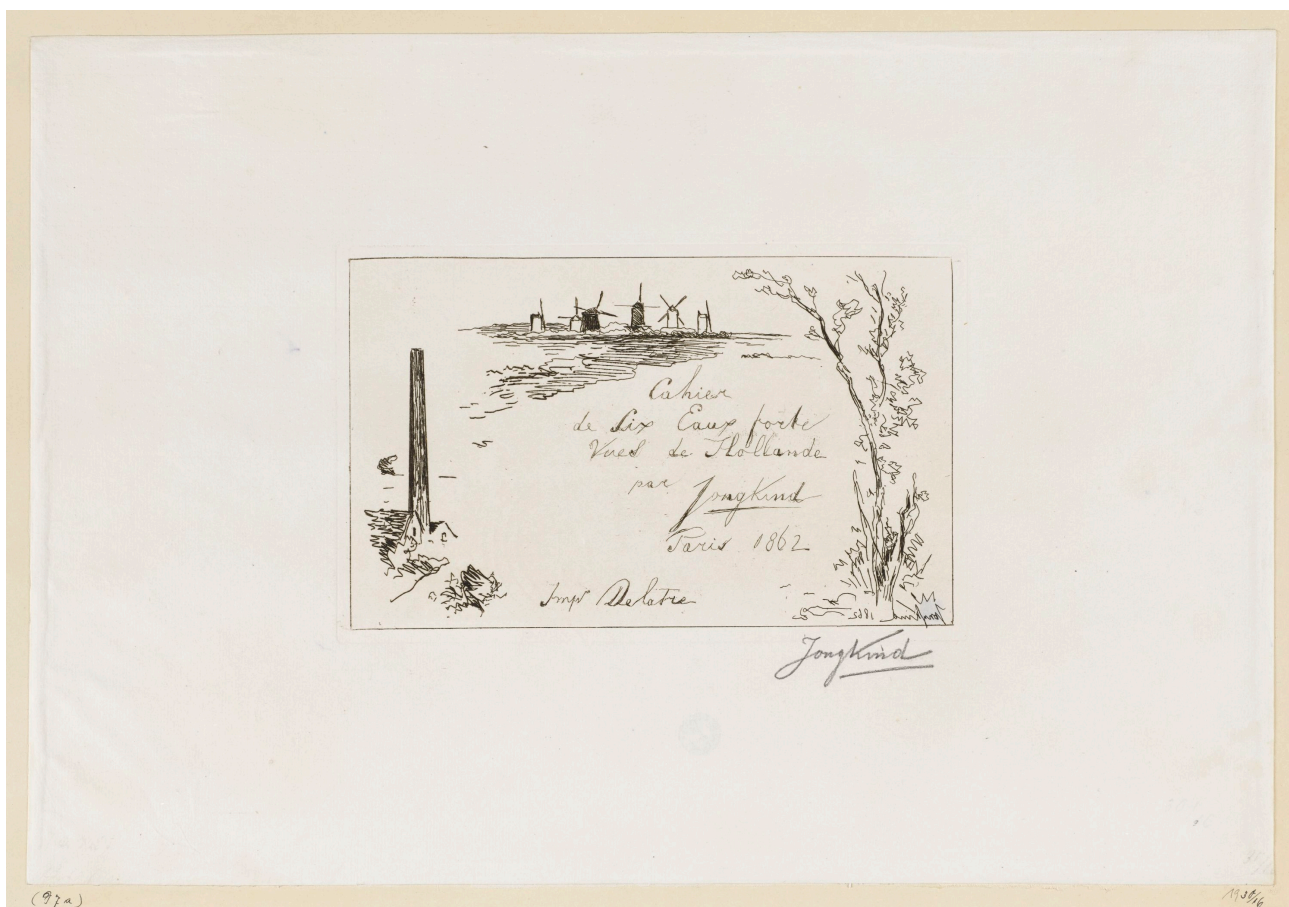 Cahier
de Six Eaux forte
Vues de Hollande
par Jongkind
Paris 1862
Imp Delatre
Jongkind 1862
Jongkind
(97a)